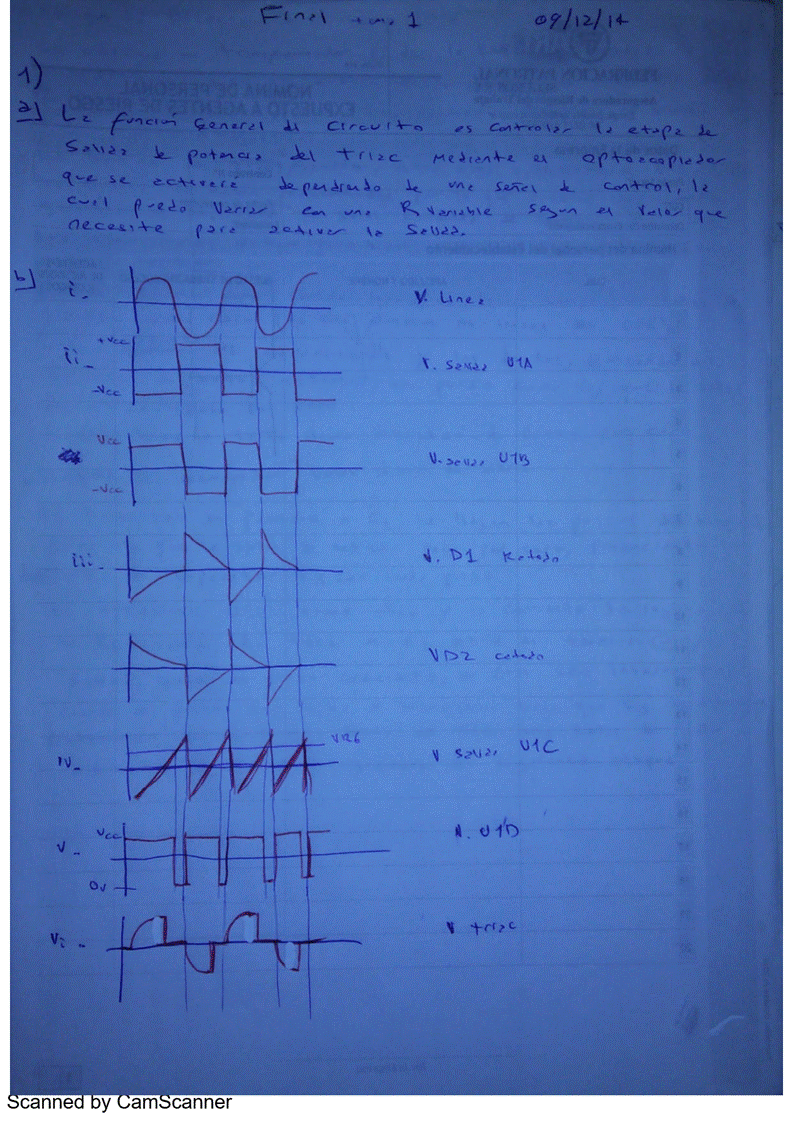 Final tema 1 09/12/14
1)
a) La función General del Circuito es controlar la etapa de
Salida de potencia del triac mediante el optoacoplador
que se activara dependiendo de una señal de control, la
cual puedo variar con una R variable segun el valor que
necesite para activar la Salida.
b)
i - V. Linea
+Vcc
ii - V. Salida U1A
-Vcc
Vcc
V. salida U1B
-Vcc
iii - V. D1 Katodo
VD2 catodo
VR6
IV - V salida U1C
Vcc
V - V. U1D
0V
Vi - V triac
Scanned by CamScanner